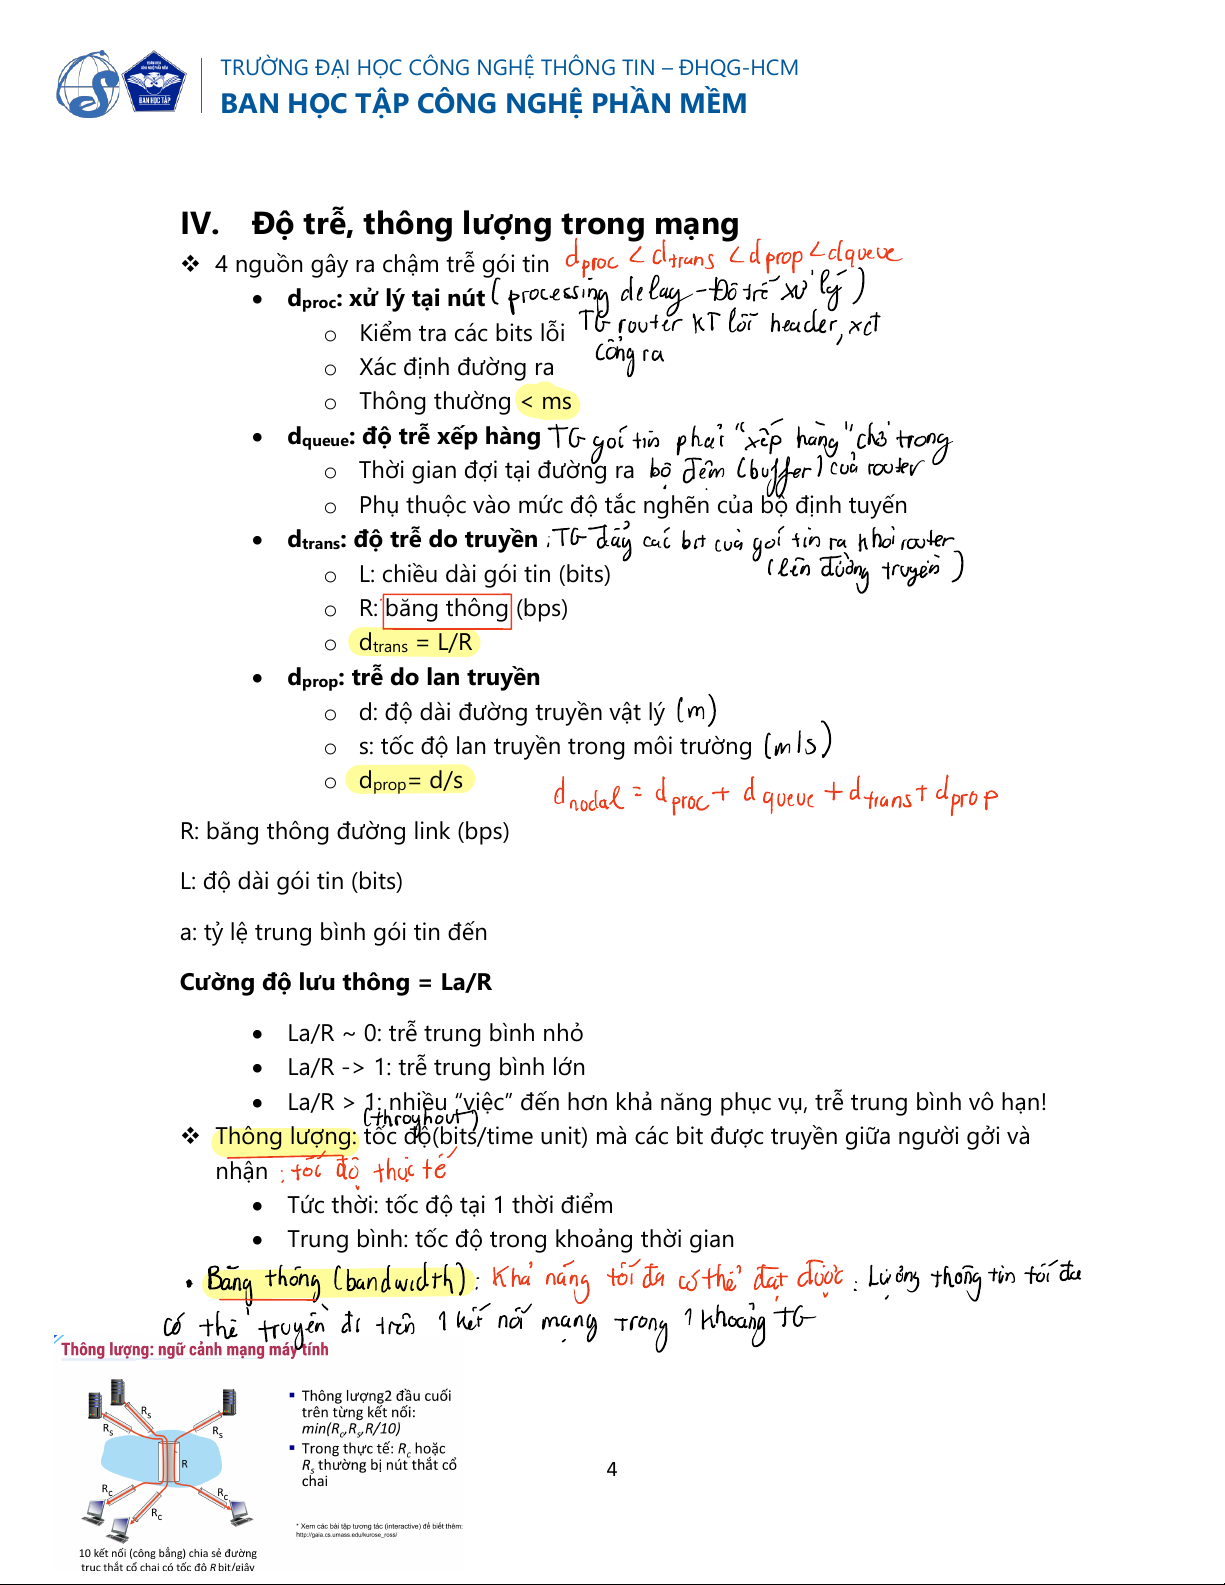 TRƯỜNG ĐẠI HỌC CÔNG NGHỆ THÔNG TIN – ĐHQG-HCM
BAN HỌC TẬP CÔNG NGHỆ PHẦN MỀM
BAN HỌC TẬP
IV. Độ trễ, thông lượng trong mạng
❖ 4 nguồn gây ra chậm trễ gói tin dproc < dtrans < dprop < dqueue
• dproc: xử lý tại nút (processing delay - Độ trễ xử lý)
o Kiểm tra các bits lỗi TG router KT lỗi header, xđ
cổng ra
o Xác định đường ra
o Thông thường < ms
• dqueue: độ trễ xếp hàng TG gói tin phải "xếp hàng" chờ trong
o Thời gian đợi tại đường ra bộ đệm (buffer) của router
o Phụ thuộc vào mức độ tắc nghẽn của bộ định tuyến
• dtrans: độ trễ do truyền : TG đẩy các bit của gói tin ra khỏi router
(lên đường truyền)
o L: chiều dài gói tin (bits)
o R: băng thông (bps)
o dtrans = L/R
• dprop: trễ do lan truyền
o d: độ dài đường truyền vật lý (m)
o s: tốc độ lan truyền trong môi trường (m/s)
o dprop= d/s
dnodal = dproc + dqueue + dtrans + dprop
R: băng thông đường link (bps)
L: độ dài gói tin (bits)
a: tỷ lệ trung bình gói tin đến
Cường độ lưu thông = La/R
• La/R ~ 0: trễ trung bình nhỏ
• La/R -> 1: trễ trung bình lớn
• La/R > 1: nhiều “việc” đến hơn khả năng phục vụ, trễ trung bình vô hạn!
(throyhout)
❖ Thông lượng: tốc độ(bits/time unit) mà các bit được truyền giữa người gởi và
nhận : tốc độ thực tế
• Tức thời: tốc độ tại 1 thời điểm
• Trung bình: tốc độ trong khoảng thời gian
• Băng thông (bandwidth): Khả năng tối đa có thể đạt được. Lượng thông tin tối đa
có thể truyền đi trên 1 kết nối mạng trong 1 khoảng TG
Thông lượng: ngữ cảnh mạng máy tính
Rs
Rs
Rs
R
Rc
Rc
Rc
10 kết nối (công bằng) chia sẻ đường
trục thắt cổ chai có tốc độ R bit/giây
▪ Thông lượng2 đầu cuối
trên từng kết nối:
min(Rc,Rs,R/10)
▪ Trong thực tế: Rc hoặc
Rs thường bị nút thắt cổ
chai
* Xem các bài tập tương tác (interactive) để biết thêm:
http://gaia.cs.umass.edu/kurose_ross/
4